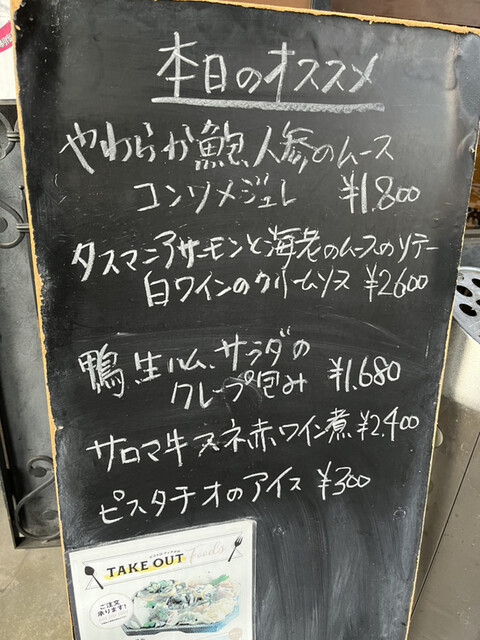 本日のオススメ
やわらか鮑、人参のムース
コンソメジュレ ¥1.800
タスマニアサーモンと海老のムースのソテー
白ワインのクリームソース ¥2600
鴨、生ハム、サラダの
クレープ包み ¥1.680
サロマ牛スネ赤ワイン煮 ¥2.400
ピスタチオのアイス ¥300
TAKE OUT Foods
ご注文
承ります!